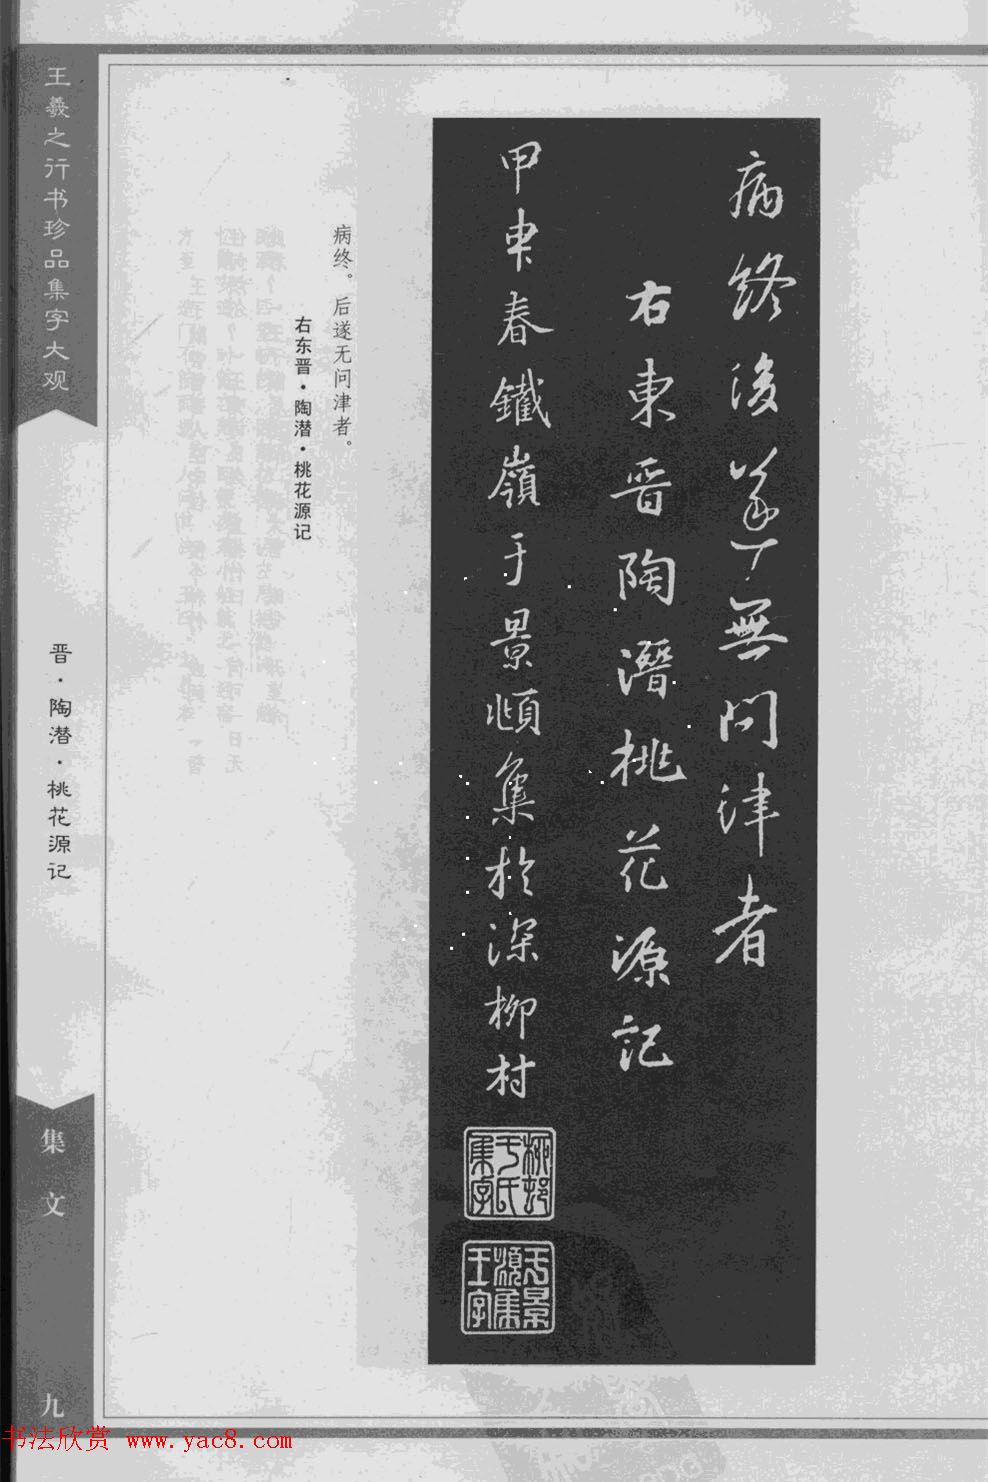 病終後遂無問津者
右東晉陶潛桃花源記
甲申春鐵嶺于景頫集於深柳村
柳邨于氏集字
于景頫集王字
病终。后遂无问津者。
右东晋·陶潜·桃花源记
王羲之行书珍品集字大观
晋·陶潜·桃花源记
集文
九
书法欣赏 www.yac8.com